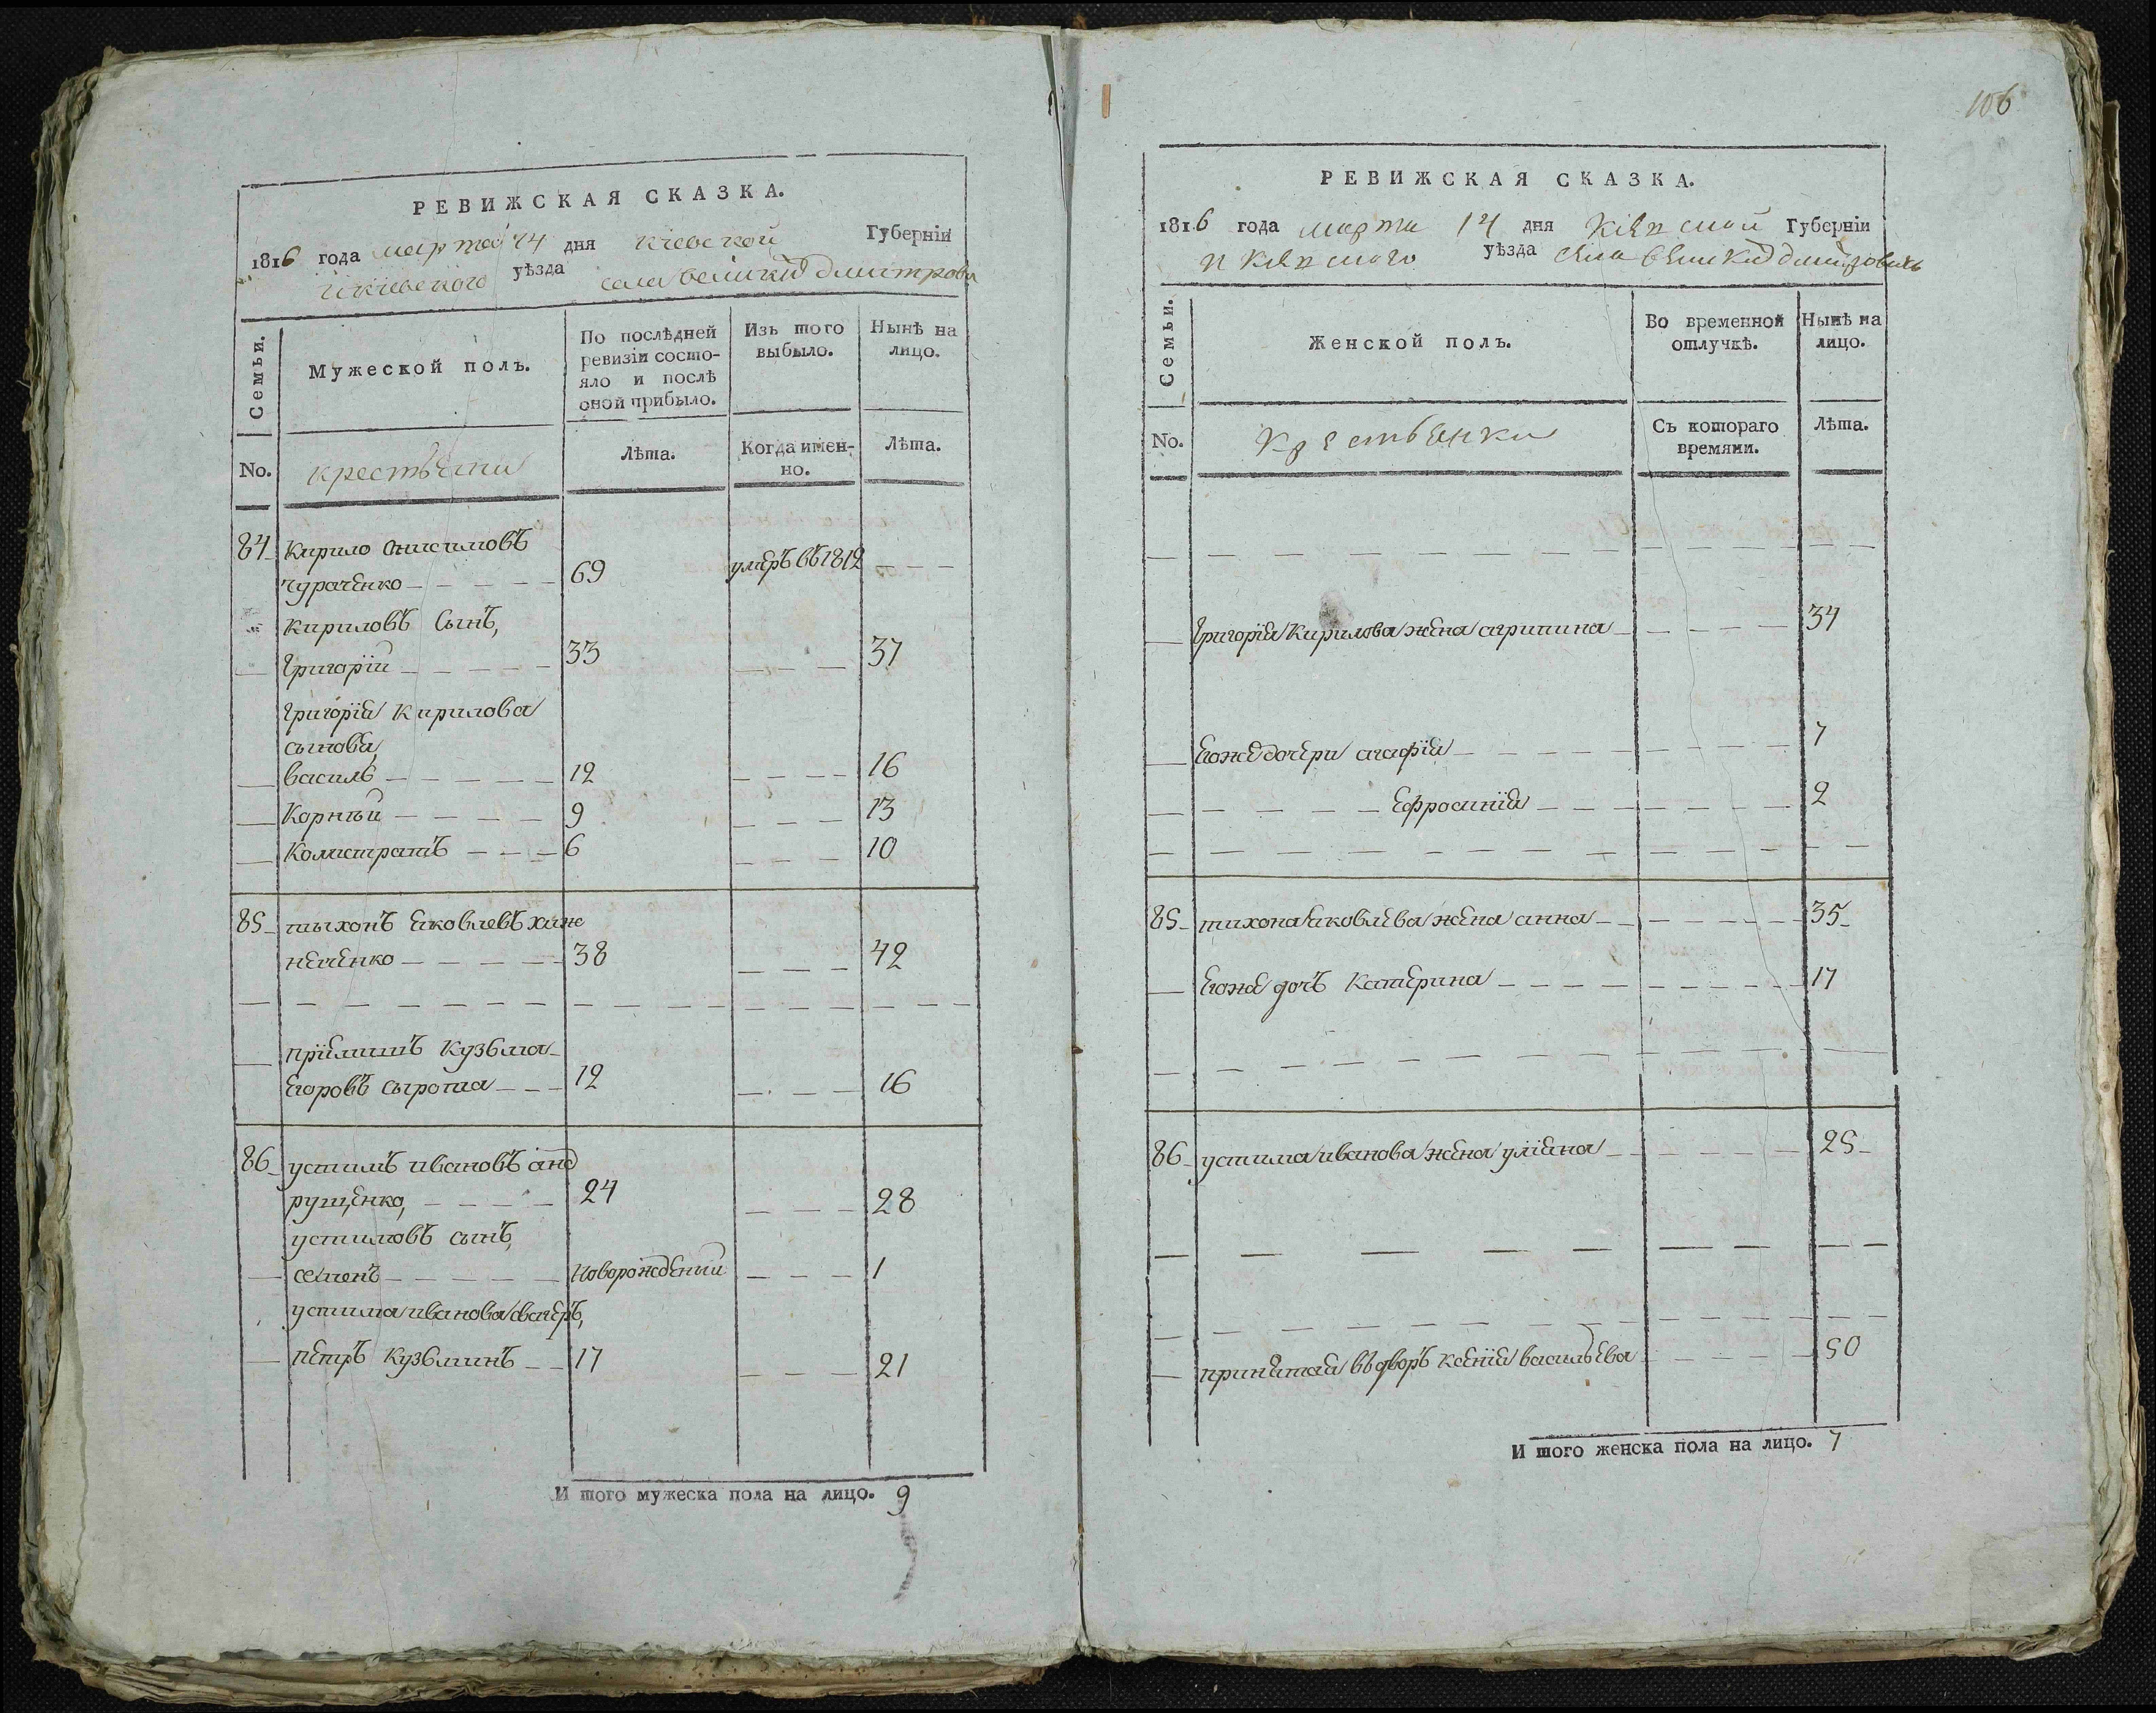 РЕВИЖСКАЯ СКАЗКА.
1816 года марта 14 дня Кіевской Губерніи
и Кіевского уѣзда села великихъ дмитрови
Семьи.
Мужеской полъ.
По послѣдней ревизіи состо-
яло и послѣ
оной прибыло.
Изъ того
выбыло.
Нынѣ на
лицо.
No.
крестьяни
Лѣта.
Когда имен-
но.
Лѣта.
84 Кирило Онисимовъ
чураченко 69 умеръ въ 1812
Кириловъ Сынъ,
Григорій 33 37
Григорія Кирилова
сыновя,
василь 12 16
Корнѣй 9 13
Колистратъ 6 10
85 тыхонъ яковлевъ хиж
неченко 38 42
пріймишъ Кузьма
Егоровъ сырота 12 16
86 устимъ ивановъ анд
рущенко, 24 28
устимовъ сынъ,
семенъ Новорожденый 1
устима иванова свагеръ,
петръ Кузьминъ 17 21
И того мужеска пола на лицо. 9
106
РЕВИЖСКАЯ СКАЗКА.
1816 года марта 14 дня Кіевской Губерніи
и Кіевского уѣзда села великихъ дмитровичь
Семьи.
Женской полъ.
Во временной
отлучкѣ.
Нынѣ на
лицо.
No.
Крестьянки
Съ котораго
времяни.
Лѣта.
Григорія Кирилова жена агрипина 34
Егоже дочери агафія 7
Ефросинія 2
85 тихона яковлева жена анна 35
Егоже дочъ Катерина 17
86 устима иванова жена уліяна 25
принятая въ дворъ ксенія васильева 50
И того женска пола на лицо. 7